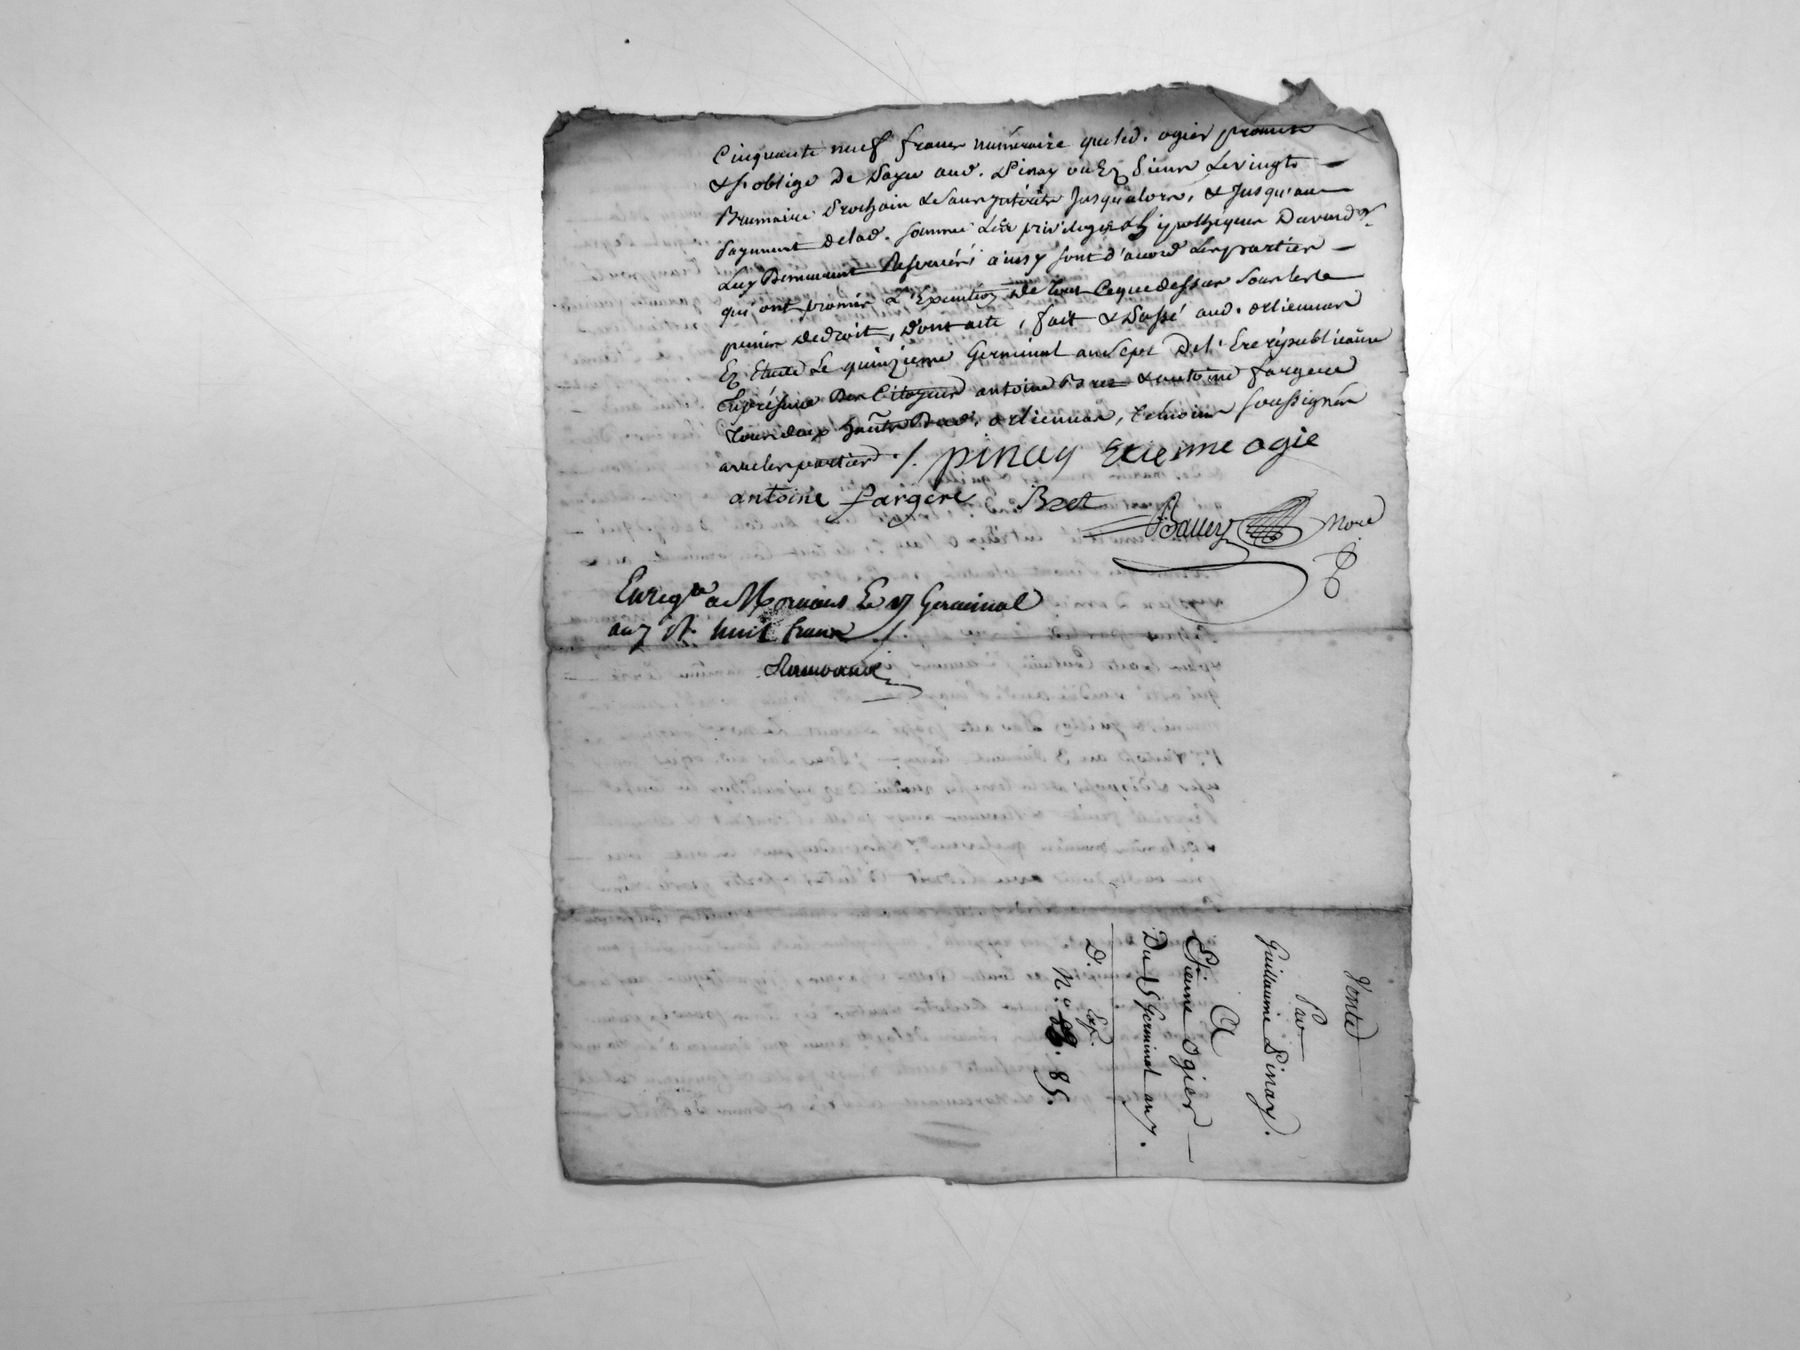 Cinquante neuf francs numéraire queled. ogier promet
& s'oblige De Payer aud. Pinay ou Ez Siens Le vingts
Brumaire Prochain & sans intérêts Jusqu'alors, & Jusqu'au
Payement delad. somme Les privileges & hypotheques Davendr
Luy Demeurent Reservées ainsy sont d'acord Les parties
qui ont promis L'Execution De tout Ceque dessus sous les
peines dedroit, dont acte, fait & Passé aud. orliennas
Ez Etude Le quinzieme Germinal an Sept Del' Ere républicaine
En présence Des Citoyens antoine Bret & antoine fargere
tous deux hants Dud. orliennas, temoins soussignés
avec les parties ./. pinay Etienne ogie
antoine fargere Bret
Bailly Nore
Enregré a Mornant Le 17 Germinal
an 7 Rt. huit francs ./.
Vente
Par
Guillaume Pinay.
A
Etienne Ogier
Du 15 Germinal an 7.
D. Exp.
N.º 85.